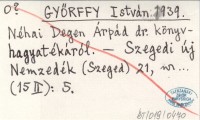 0?
GYŐRFFY István. 1939.
Néhai Degen Árpád dr. könyv-
hagyatékáról. — Szegedi új
Nemzedék (Szeged) 21, nr...
(15 II): 5.